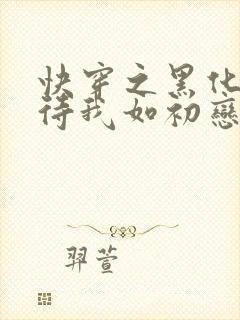 快穿之黑化
待我如初戀
羿萱